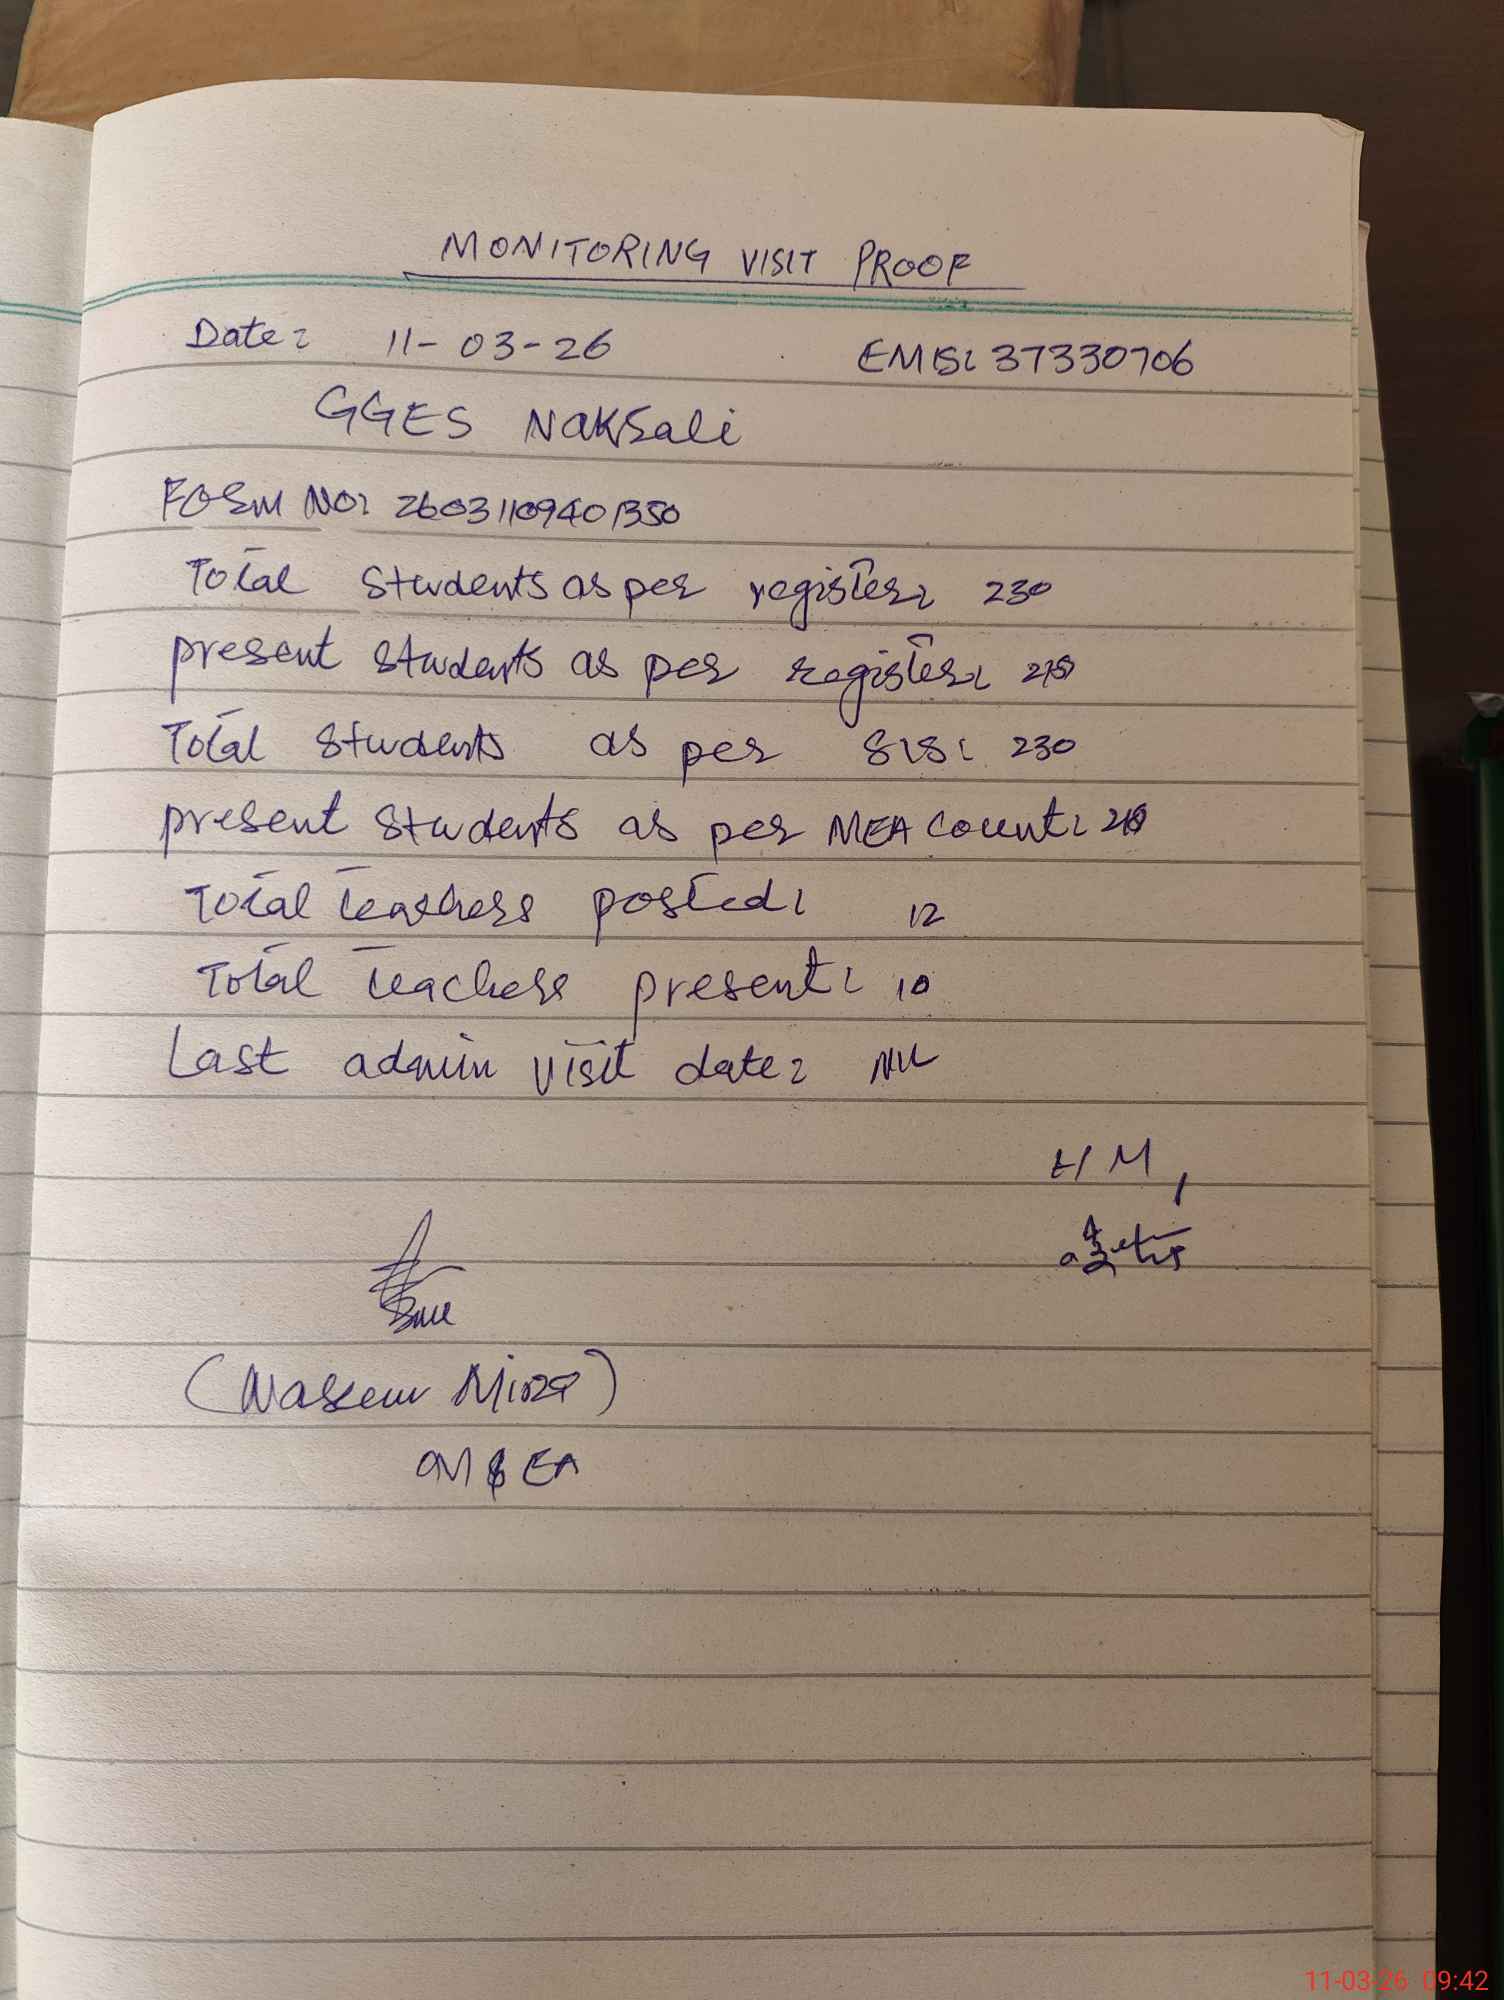 MONITORING VISIT PROOF
Date: 11-03-26 EMIS: 37330706
GGES Naksali
Form No: 26031109401350
Total students as per register: 230
present students as per register:
Total students as per SIS: 230
present students as per MEA count:
Total teachers posted: 12
Total teachers present: 10
Last admin visit date: Nil
HM,
(Naseem Mirza)
MEA
11-03-26 09:42